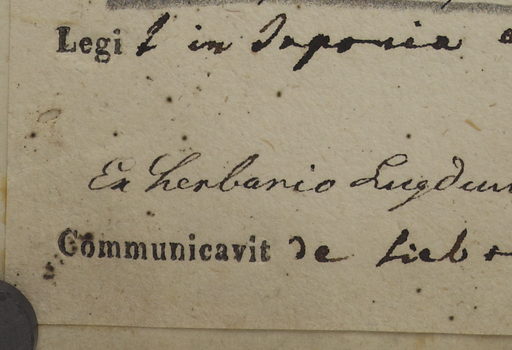 Legit in Japonia
Ex herbario Lugdun
Communicavit de Sieb